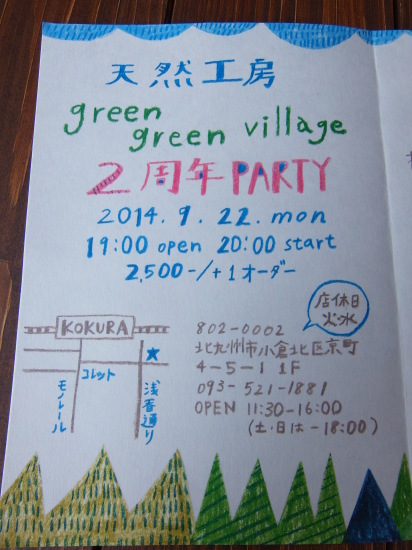 天然工房
green
green village
2周年PARTY
2014.9.22.mon
19:00 open 20:00 start
2,500-/+1オーダー
店休日
火・水
KOKURA
コレット
モノレール
浅香通り
802-0002
北九州市小倉北区京町
4-5-1 1F
093-521-1881
OPEN 11:30-16:00
(土・日は-18:00)